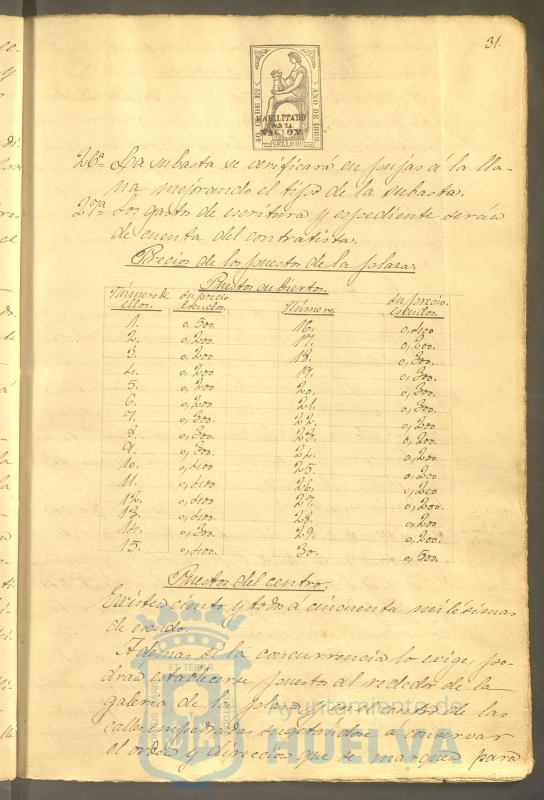 31.
10 CS. DE Eº AÑO DE 1869
HABILITADO
POR LA
NACION.
SELLO 9º
26ª La subasta se verificará en pujas á la lla-
na mejorando el tipo de la subasta.
27ª Los gastos de escritura y espediente serán
de cuenta del contratista.
Precios de los puestos de la plaza.
Puestos cubiertos.
Número de ellos. Su precio escudos. Número. Su precio. escudos.
1. 0,500. 16. 0,400
2. 0,200 17. 0,200.
3. 0,200 18. 0,300.
4. 0,200 19. 0,300.
5. 0,200 20. 0,300.
6. 0,200 21. 0,300.
7. 0,300. 22. 0,200
8. 0,300. 23. 0,200.
9. 0,300. 24. 0,200
10. 0,400 25. 0,200
11. 0,400 26. 0,200
12. 0,400 27. 0,200.
13. 0,400. 28. 0,200
14. 0,300. 29. 0,200.
15. 0,400. 30. 0,500.
Puestos del centro.
Existen ciento y todos á cincuenta milésimas
de escudo.
Ademas si la concurrencia lo exige, po-
dran establecerse puestos al rededor de la
galeria de la plaza y en union de las
calles empedradas sugetandose a conservar
el orden y direccion que se marquen para
Ayuntamiento de
HUELVA